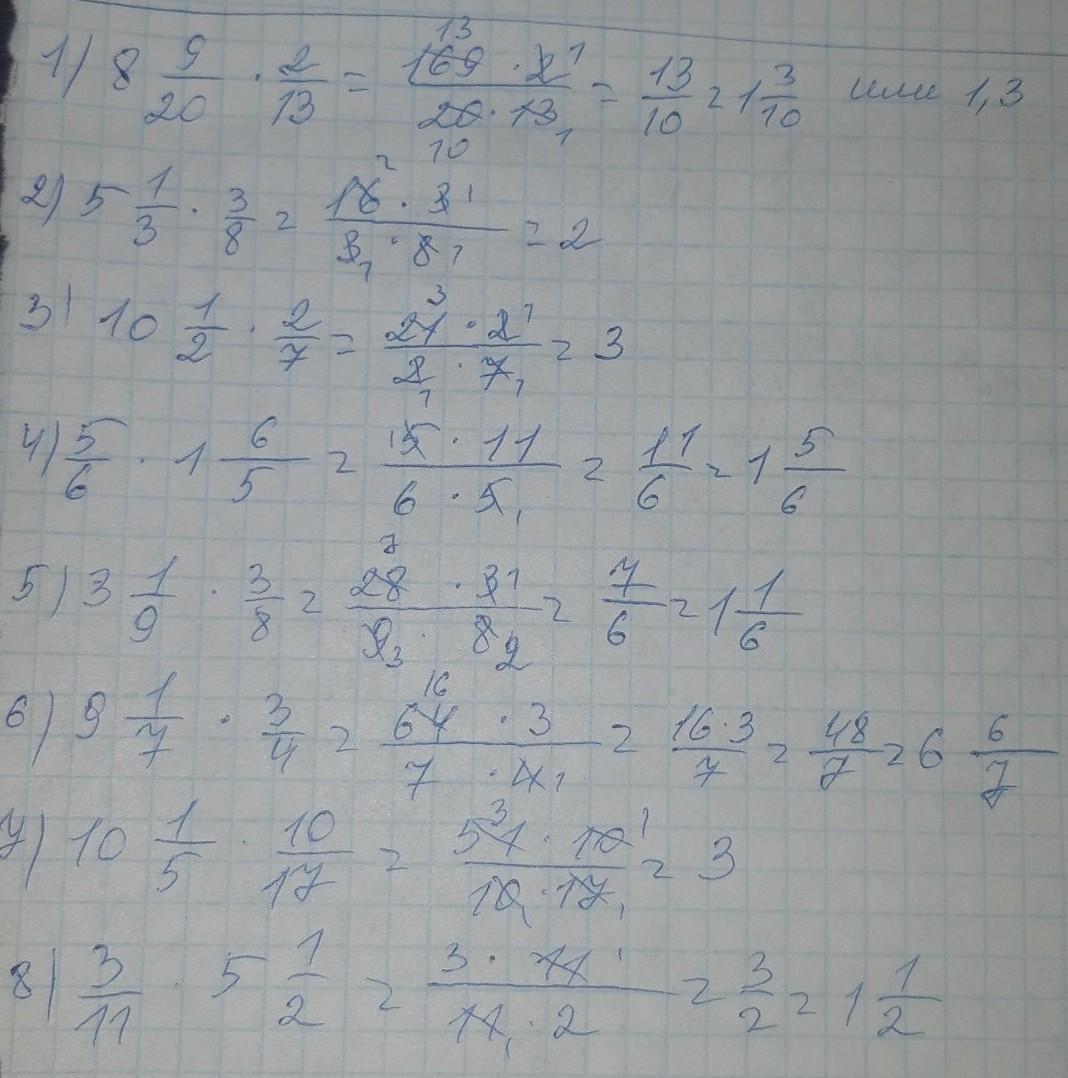 1) 8 9/20 · 2/13 = 169 · 2 / 20 · 13 = 13/10 = 1 3/10 или 1,3
2) 5 1/3 · 3/8 = 16 · 3 / 3 · 8 = 2
3) 10 1/2 · 2/7 = 21 · 2 / 2 · 7 = 3
4) 5/6 · 1 6/5 = 5 · 11 / 6 · 5 = 11/6 = 1 5/6
5) 3 1/9 · 3/8 = 28 · 3 / 9 · 8 = 7/6 = 1 1/6
6) 9 1/7 · 3/4 = 64 · 3 / 7 · 4 = 16·3/7 = 48/7 = 6 6/7
7) 10 1/5 · 10/17 = 51 · 10 / 10 · 17 = 3
8) 3/11 · 5 1/2 = 3 · 11 / 11 · 2 = 3/2 = 1 1/2